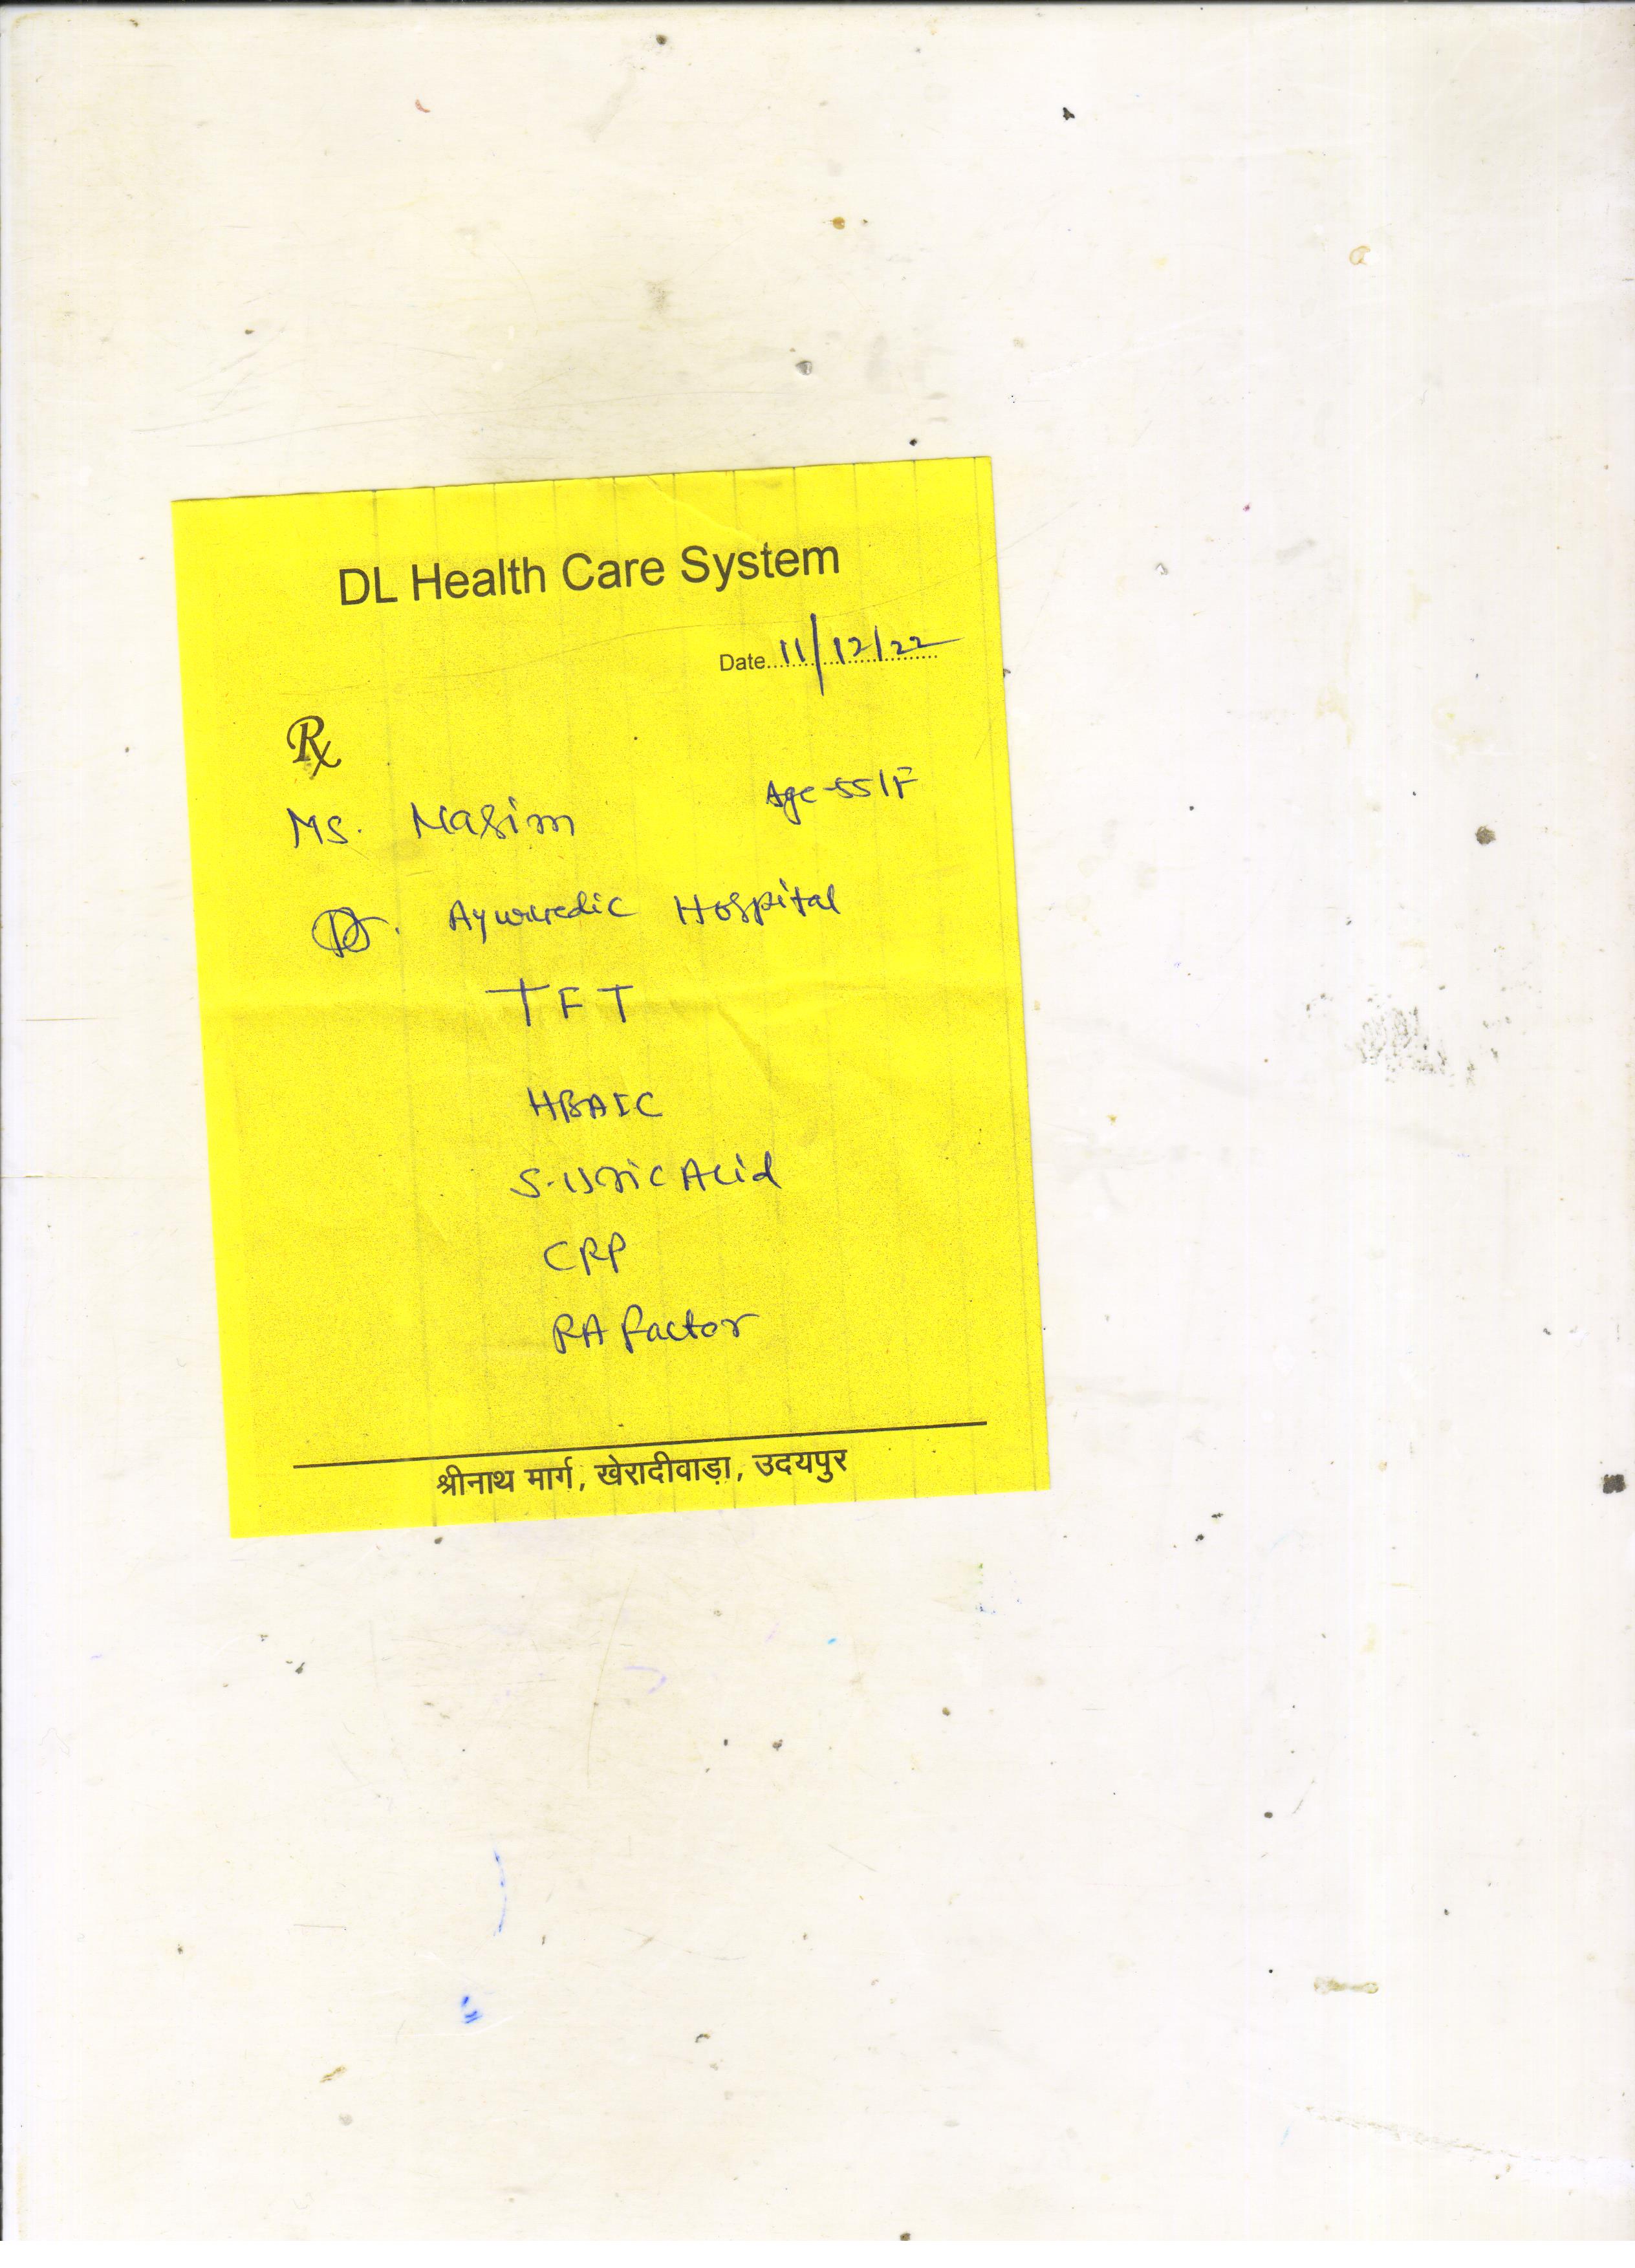 DL Health Care System
Date 11/12/22
Rx
Ms. Nasim Age-55/F
Dr. Ayurvedic Hospital
TFT
HBA1C
S-Uric Acid
CRP
RA factor
श्रीनाथ मार्ग, खेरादीवाड़ा, उदयपुर